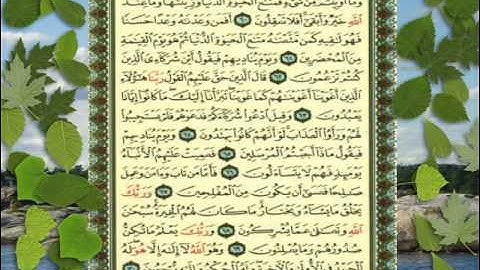 وَمَا أُوتِيتُم مِّن شَيْءٍ فَمَتَٰعُ ٱلْحَيَوٰةِ ٱلدُّنْيَا وَزِينَتُهَا وَمَا عِندَ
ٱللَّهِ خَيْرٌ وَأَبْقَىٰٓ أَفَلَا تَعْقِلُونَ ۝٦٠ أَفَمَن وَعَدْنَٰهُ وَعْدًا حَسَنًا
فَهُوَ لَٰقِيهِ كَمَن مَّتَّعْنَٰهُ مَتَٰعَ ٱلْحَيَوٰةِ ٱلدُّنْيَا ثُمَّ هُوَ يَوْمَ ٱلْقِيَٰمَةِ
مِنَ ٱلْمُحْضَرِينَ ۝٦١ وَيَوْمَ يُنَادِيهِمْ فَيَقُولُ أَيْنَ شُرَكَآءِىَ ٱلَّذِينَ
كُنتُمْ تَزْعُمُونَ ۝٦٢ قَالَ ٱلَّذِينَ حَقَّ عَلَيْهِمُ ٱلْقَوْلُ رَبَّنَا هَٰٓؤُلَآءِ
ٱلَّذِينَ أَغْوَيْنَآ أَغْوَيْنَٰهُمْ كَمَا غَوَيْنَا تَبَرَّأْنَآ إِلَيْكَ مَا كَانُوٓا۟ إِيَّانَا
يَعْبُدُونَ ۝٦٣ وَقِيلَ ٱدْعُوا۟ شُرَكَآءَكُمْ فَدَعَوْهُمْ فَلَمْ يَسْتَجِيبُوا۟
لَهُمْ وَرَأَوُا۟ ٱلْعَذَابَ لَوْ أَنَّهُمْ كَانُوا۟ يَهْتَدُونَ ۝٦٤ وَيَوْمَ يُنَادِيهِمْ
فَيَقُولُ مَاذَآ أَجَبْتُمُ ٱلْمُرْسَلِينَ ۝٦٥ فَعَمِيَتْ عَلَيْهِمُ ٱلْأَنۢبَآءُ
يَوْمَئِذٍ فَهُمْ لَا يَتَسَآءَلُونَ ۝٦٦ فَأَمَّا مَن تَابَ وَءَامَنَ وَعَمِلَ
صَٰلِحًا فَعَسَىٰٓ أَن يَكُونَ مِنَ ٱلْمُفْلِحِينَ ۝٦٧ وَرَبُّكَ
يَخْلُقُ مَا يَشَآءُ وَيَخْتَارُ مَا كَانَ لَهُمُ ٱلْخِيَرَةُ سُبْحَٰنَ
ٱللَّهِ وَتَعَٰلَىٰ عَمَّا يُشْرِكُونَ ۝٦٨ وَرَبُّكَ يَعْلَمُ مَا تُكِنُّ
صُدُورُهُمْ وَمَا يُعْلِنُونَ ۝٦٩ وَهُوَ ٱللَّهُ لَآ إِلَٰهَ إِلَّا هُوَ لَهُ
ٱلْحَمْدُ فِى ٱلْأُولَىٰ وَٱلْءَاخِرَةِ وَلَهُ ٱلْحُكْمُ وَإِلَيْهِ تُرْجَعُونَ ۝٧٠